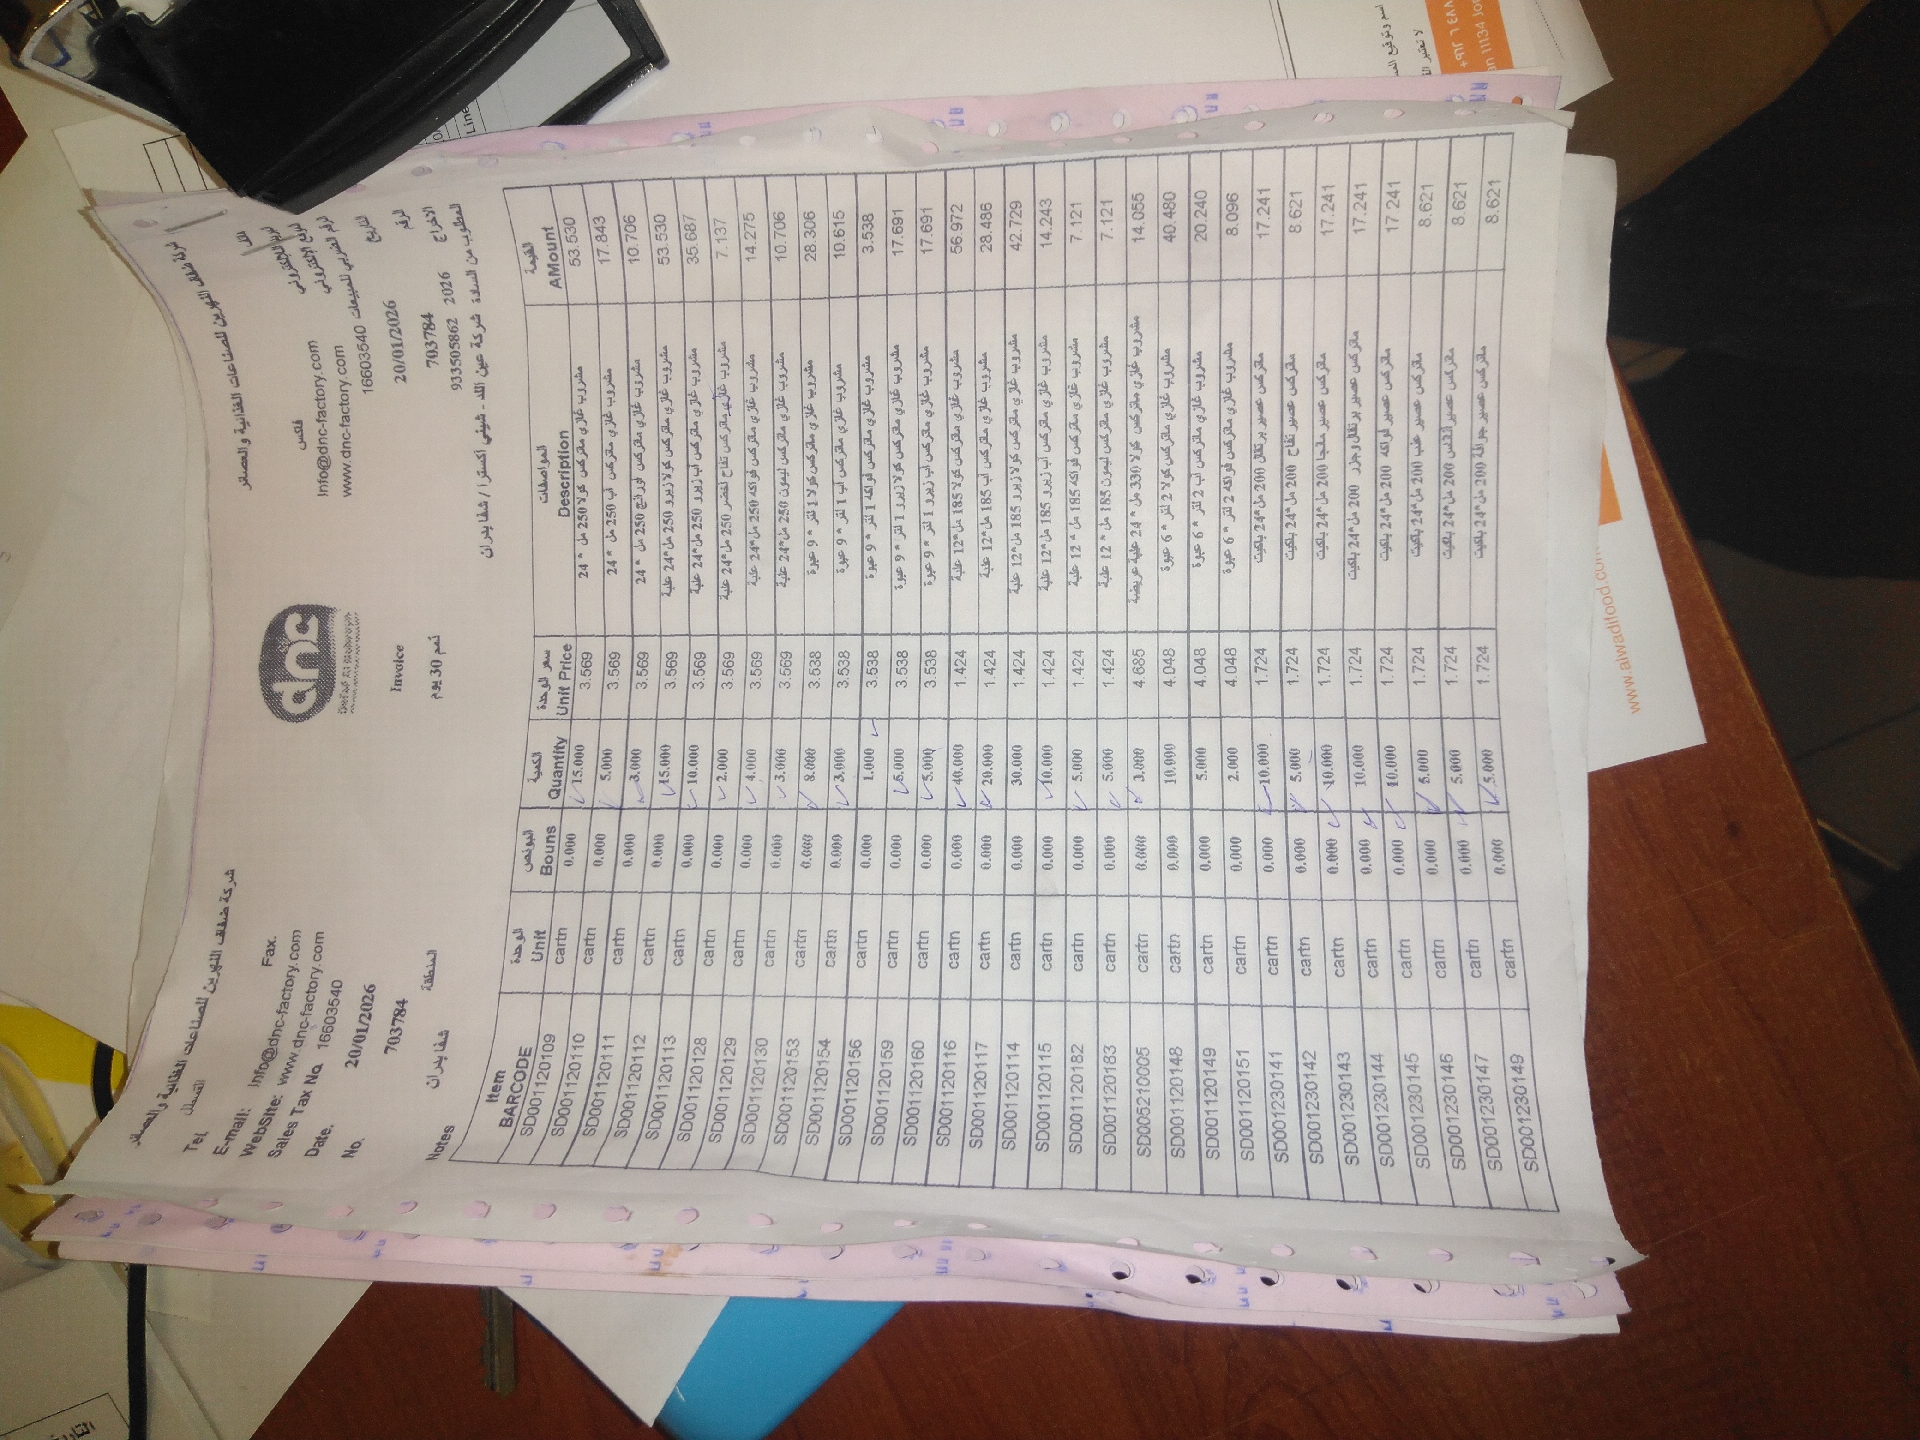 شركة ضفاف النهرين للصناعات الغذائية والعصائر
شركة ضفاف النهرين للصناعات الغذائية والعصائر
Tel,
Fax.
فاكس
E-mail: Info@dnc-factory.com
Info@dnc-factory.com
WebSite: www.dnc-factory.com
www.dnc-factory.com
Sales Tax No. 16603540
16603540 الرقم الضريبي للمبيعات
dnc
Date. 20/01/2026
Invoice
20/01/2026 التاريخ
No. 703784
7703784 الرقم
933505862 2026 الاخراج
Notes شفا بدران المنطقة
ذمم 30 يوم
المطلوب من السادة شركة عين الله - شيفي اكسترا / شفا بدران
Item BARCODE | الوحدة Unit | البونص Bouns | الكمية Quantity | سعر الوحدة Unit Price | المواصفات Description | القيمة AMount
SD001120109 cartn 0.000 15.000 3.569 مشروب غازي ماتركس كولا 250 مل * 24 53.530
SD001120110 cartn 0.000 5.000 3.569 مشروب غازي ماتركس اب 250 مل * 24 17.843
SD001120111 cartn 0.000 3.000 3.569 مشروب غازي ماتركس اورانج 250 مل * 24 10.706
SD001120112 cartn 0.000 15.000 3.569 مشروب غازي ماتركس كولا زيرو 250 مل*24 علبة 53.530
SD001120113 cartn 0.000 10.000 3.569 مشروب غازي ماتركس اب زيرو 250 مل*24 علبة 35.687
SD001120128 cartn 0.000 2.000 3.569 مشروب غازي ماتركس تفاح اخضر 250 مل*24 علبة 7.137
SD001120129 cartn 0.000 4.000 3.569 مشروب غازي ماتركس فواكه 250 مل*24 علبة 14.275
SD001120130 cartn 0.000 3.000 3.569 مشروب غازي ماتركس ليمون 250 مل*24 علبة 10.706
SD001120153 cartn 0.000 8.000 3.538 مشروب غازي ماتركس كولا 1 لتر * 9 عبوة 28.306
SD001120154 cartn 0.000 3.000 3.538 مشروب غازي ماتركس اب 1 لتر * 9 عبوة 10.615
SD001120156 cartn 0.000 1.000 3.538 مشروب غازي ماتركس فواكه 1 لتر * 9 عبوة 3.538
SD001120159 cartn 0.000 5.000 3.538 مشروب غازي ماتركس كولا زيرو 1 لتر * 9 عبوة 17.691
SD001120160 cartn 0.000 5.000 3.538 مشروب غازي ماتركس اب زيرو 1 لتر * 9 عبوة 17.691
SD001120116 cartn 0.000 40.000 1.424 مشروب غازي ماتركس كولا 185 مل*12 علبة 56.972
SD001120117 cartn 0.000 20.000 1.424 مشروب غازي ماتركس اب 185 مل*12 علبة 28.486
SD001120114 cartn 0.000 30.000 1.424 مشروب غازي ماتركس كولا زيرو 185 مل*12 علبة 42.729
SD001120115 cartn 0.000 10.000 1.424 مشروب غازي ماتركس اب زيرو 185 مل*12 علبة 14.243
SD001120182 cartn 0.000 5.000 1.424 مشروب غازي ماتركس فواكه 185 مل * 12 علبة 7.121
SD001120183 cartn 0.000 5.000 1.424 مشروب غازي ماتركس ليمون 185 مل * 12 علبة 7.121
SD005210005 cartn 0.000 3.000 4.685 مشروب غازي ماتركس كولا 330 مل * 24 علبة عريضة 14.055
SD001120148 cartn 0.000 10.000 4.048 مشروب غازي ماتركس كولا 2 لتر * 6 عبوة 40.480
SD001120149 cartn 0.000 5.000 4.048 مشروب غازي ماتركس اب 2 لتر * 6 عبوة 20.240
SD001120151 cartn 0.000 2.000 4.048 مشروب غازي ماتركس فواكه 2 لتر * 6 عبوة 8.096
SD001230141 cartn 0.000 10.000 1.724 ماتركس عصير برتقال 200 مل*24 باكيت 17.241
SD001230142 cartn 0.000 5.000 1.724 ماتركس عصير تفاح 200 مل*24 باكيت 8.621
SD001230143 cartn 0.000 10.000 1.724 ماتركس عصير مانجا 200 مل*24 باكيت 17.241
SD001230144 cartn 0.000 10.000 1.724 ماتركس عصير برتقال وجزر 200 مل*24 باكيت 17.241
SD001230145 cartn 0.000 10.000 1.724 ماتركس عصير فواكه 200 مل*24 باكيت 17 241
SD001230146 cartn 0.000 5.000 1.724 ماتركس عصير عنب 200 مل*24 باكيت 8.621
SD001230147 cartn 0.000 5.000 1.724 ماتركس عصير اناناس 200 مل*24 باكيت 8.621
SD001230149 cartn 0.000 5.000 1.724 ماتركس عصير جوافة 200 مل*24 باكيت 8.621
www.alwadifood.com